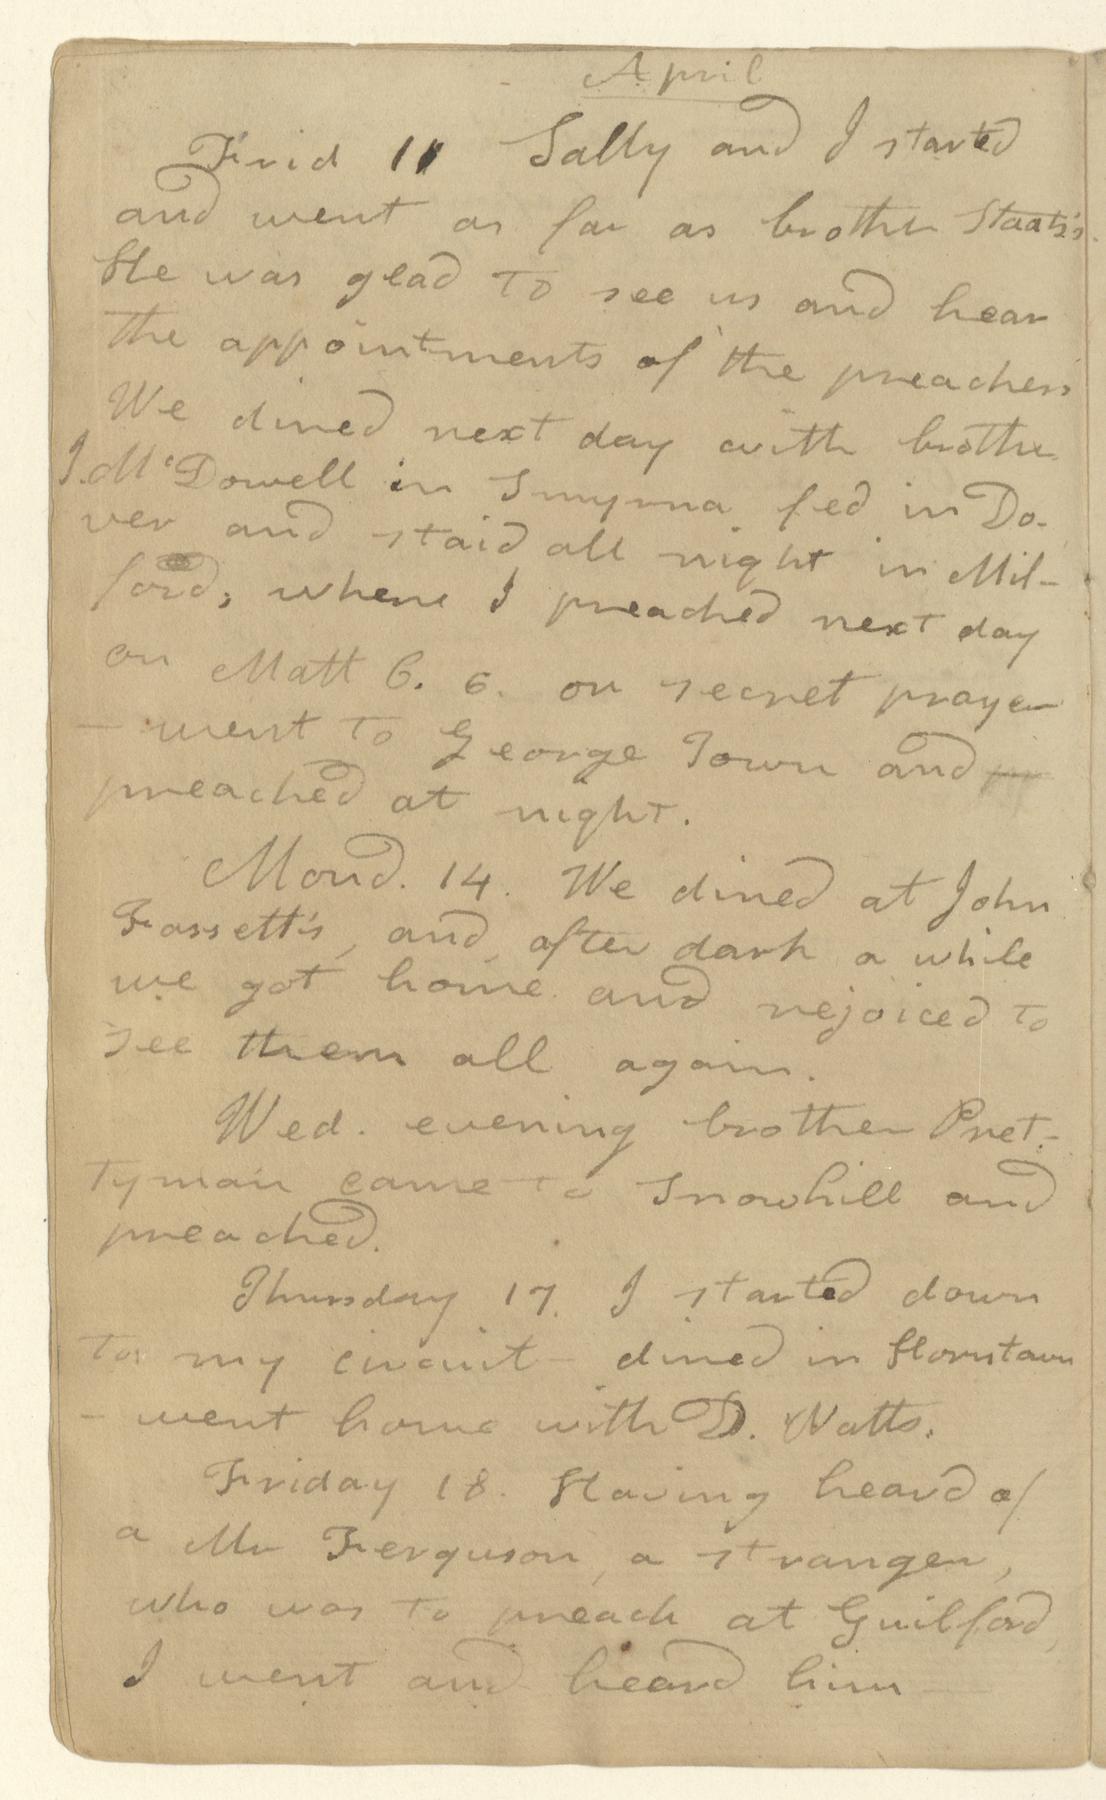 April
Frid 11 Sally and I started
and went as far as brother Staats's.
He was glad to see us and hear
the appointments of the preachers
We dined next day with brother
J. McDowell in Smyrna fed in Do-
ver and staid all night in Mil-
ford; where I preached next day
on Matt 6. 6. on secret prayer
- went to George Town and
preached at night.
Mond. 14. We dined at John
Fassett's, and, after dark a while
we got home and rejoiced to
see them all again.
Wed. evening brother Pret-
tyman came to Snowhill and
preached.
Thursday 17. I started down
to my circuit - dined in Horntown
- went home with D. Watts.
Friday 18. Having heard of
a Mr Ferguson, a stranger,
who was to preach at Guilford,
I went and heard him -